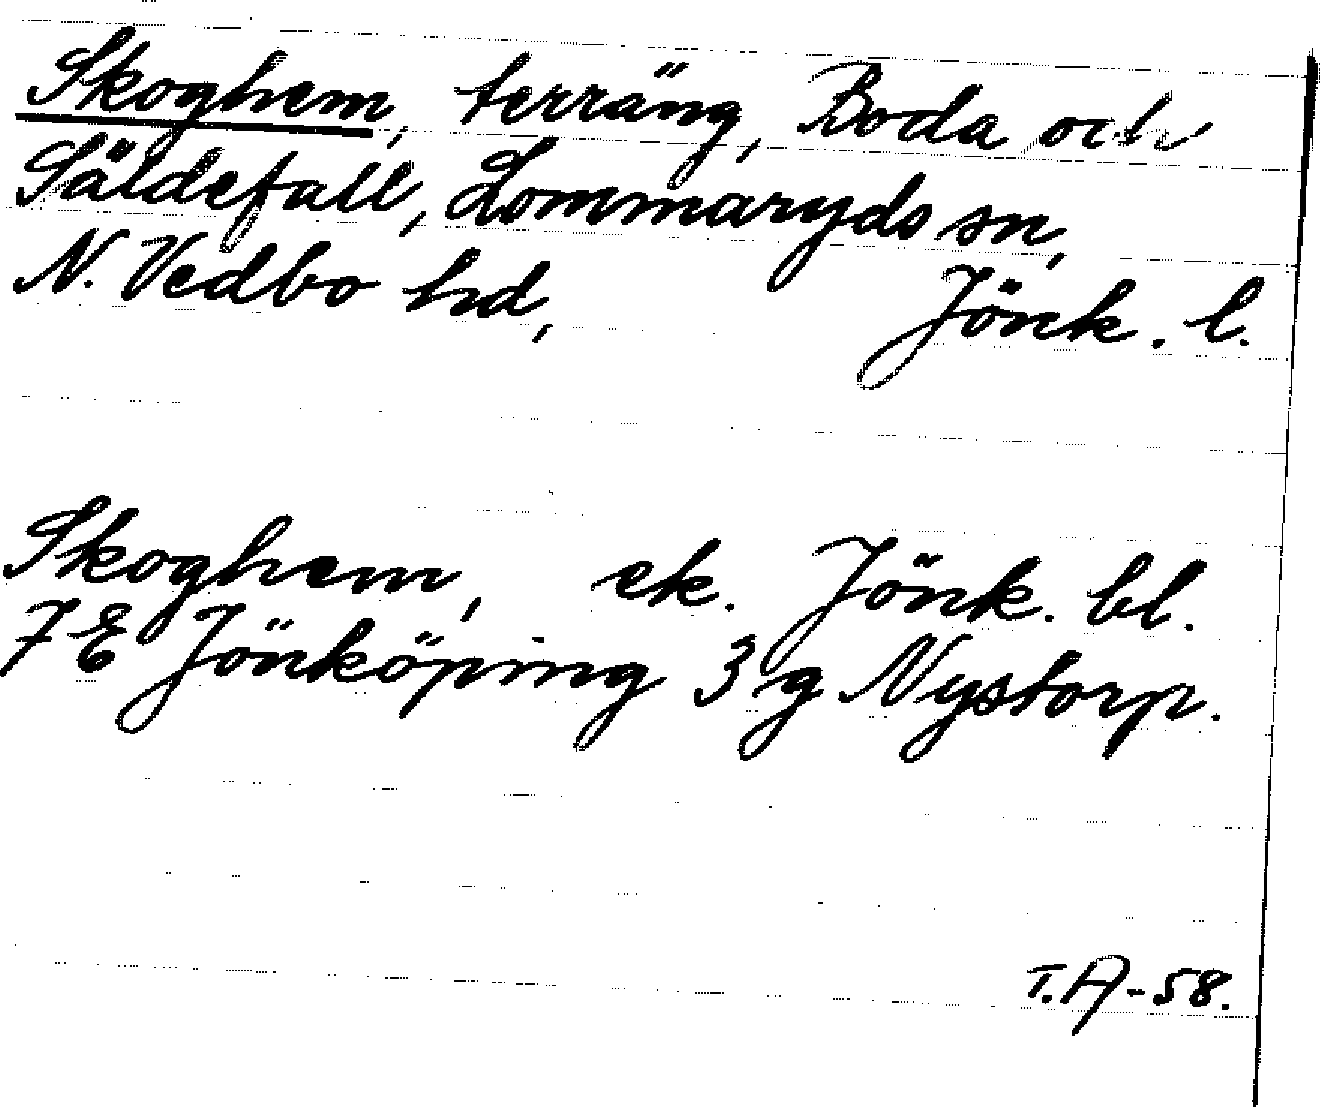 Skoghem, terräng, Boda och
Säldefall, Lommaryds sn,
N. Vedbo hd, Jönk. l.
Skoghem, ek. Jönk. bl.
7E Jönköping 3 g Nystorp.
T.A-58.